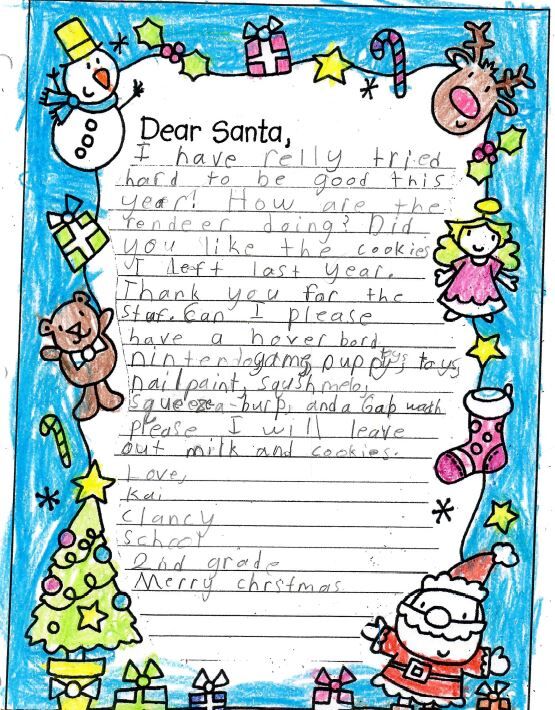 Dear Santa,
I have relly tried
hard to be good this
year! How are the
rendeer doing? Did
you like the cookies
I left last year.
Thank you for the
stuf. Can I please
have a hover bord,
nintendo game, puppy toys, toys,
nail paint, squshmelo,
squeeze-a-burp, and a Gab wath
please I will leave
out milk and cookies.
Love,
Kai
Clancy
School
2nd grade
Merry chrstmas